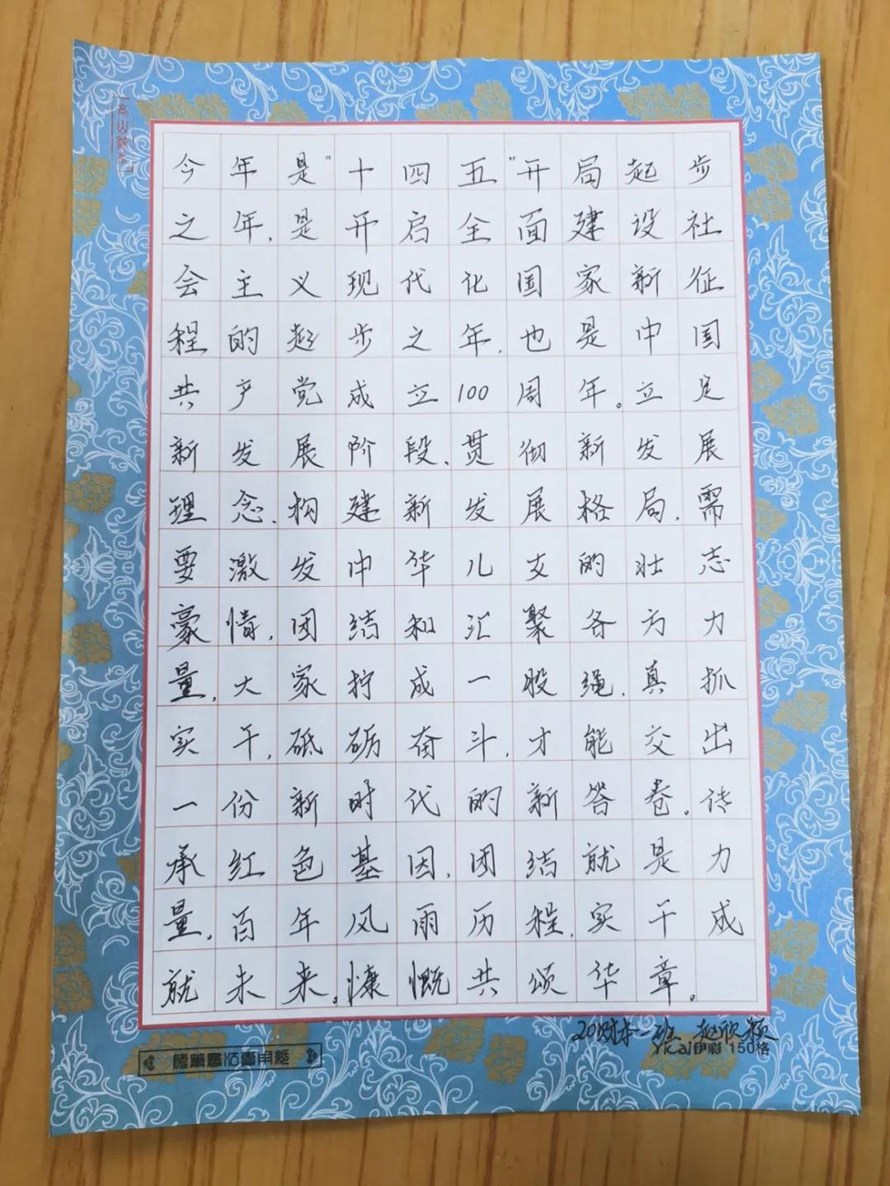 今年是"十四五"开局起步
之年,是开启全面建设社
会主义现代化国家新征
程的起步之年,也是中国
共产党成立100周年。立足
新发展阶段、贯彻新发展
理念、构建新发展格局,需
要激发中华儿女的壮志
豪情,团结和汇聚各方力
量,大家拧成一股绳,真抓
实干,砥砺奋斗,才能交出
一份新时代的新答卷。传
承红色基因,团结就是力
量,百年风雨历程,实干成
就未来。慷慨共颂华章。
20财本一班 赵欣颖
硬笔书法专用纸
Yicai印彩 150格